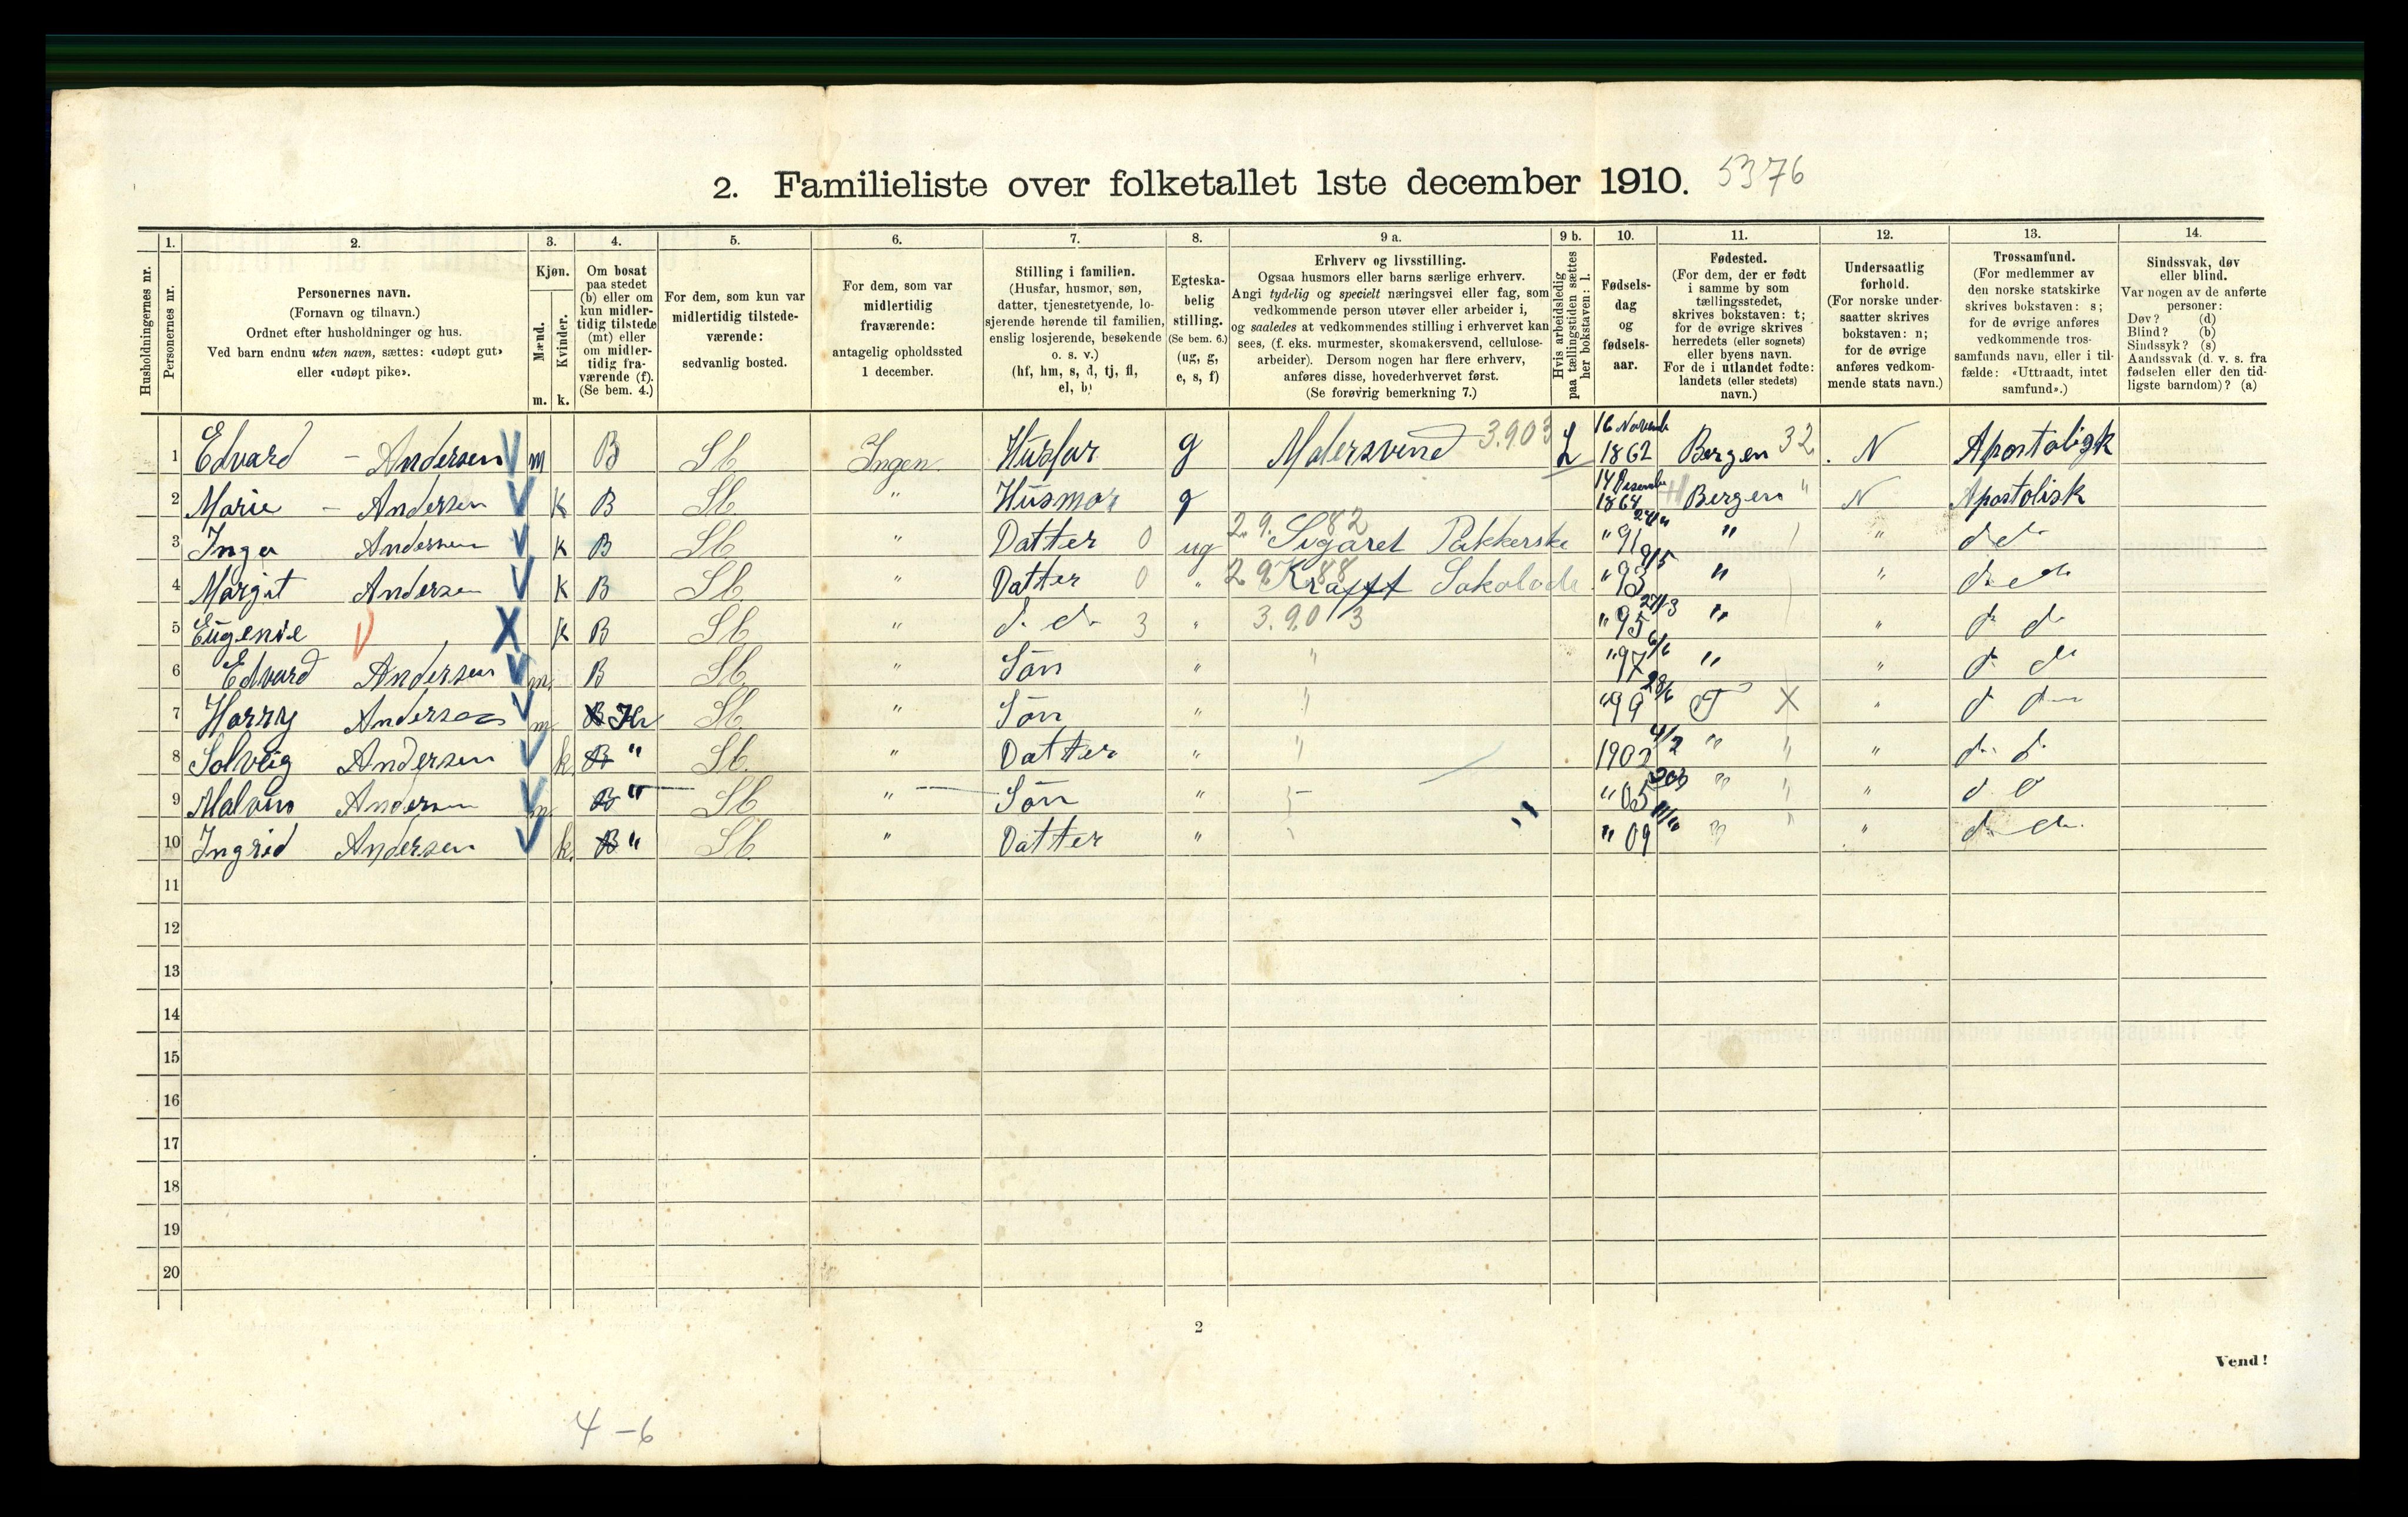 2. Familieliste over folketallet 1ste december 1910. 5376
Husholdningernes nr.
1.
Personernes nr.
2.
Personernes navn.
(Fornavn og tilnavn.)
Ordnet efter husholdninger og hus.
Ved barn endnu uten navn, sættes: «udøpt gut»
eller «udøpt pike».
3.
Kjøn.
Mænd.
Kvinder.
m. k.
4.
Om bosat
paa stedet
(b) eller om
kun midler-
tidig tilstede
(mt) eller
om midler-
tidig fra-
værende (f).
(Se bem. 4.)
5.
For dem, som kun var
midlertidig tilstede-
værende:
sedvanlig bosted.
6.
For dem, som var
midlertidig
fraværende:
antagelig opholdssted
1 december.
7.
Stilling i familien.
(Husfar, husmor, søn,
datter, tjenestetyende, lo-
sjerende hørende til familien,
enslig losjerende, besøkende
o. s. v.)
(hf, hm, s, d, tj, fl,
el, b)
8.
Egteska-
belig
stilling.
(Se bem. 6.)
(ug, g,
e, s, f)
9 a.
Erhverv og livsstilling.
Ogsaa husmors eller barns særlige erhverv.
Angi tydelig og specielt næringsvei eller fag, som
vedkommende person utøver eller arbeider i,
og saaledes at vedkommendes stilling i erhvervet kan
sees, (f. eks. murmester, skomakersvend, cellulose-
arbeider). Dersom nogen har flere erhverv,
anføres disse, hovederhvervet først.
(Se forøvrig bemerkning 7.)
9 b.
Hvis arbeidsledig
paa tællingstiden sættes
her bokstaven: l.
10.
Fødsels-
dag
og
fødsels-
aar.
11.
Fødested.
(For dem, der er født
i samme by som
tællingsstedet,
skrives bokstaven: t;
for de øvrige skrives
herredets (eller sognets)
eller byens navn.
For de i utlandet fødte:
landets (eller stedets)
navn.)
12.
Undersaatlig
forhold.
(For norske under-
saatter skrives
bokstaven: n;
for de øvrige
anføres vedkom-
mende stats navn.)
13.
Trossamfund.
(For medlemmer av
den norske statskirke
skrives bokstaven: s;
for de øvrige anføres
vedkommende tros-
samfunds navn, eller i til-
fælde: «Uttraadt, intet
samfund».)
14.
Sindssvak, døv
eller blind.
Var nogen av de anførte
personer:
Døv? (d)
Blind? (b)
Sindssyk? (s)
Aandssvak (d. v. s. fra
fødselen eller den tid-
ligste barndom)? (a)
1 Edvard - Andersen m B Sb. Ingen Husfar g Malersvend 3.903 L 16 Novemb 1862 Bergen 32 N Apostoligk
2 Marie - Andersen k B Sb. " Husmor g 14 Desember 1864 Bergen " N Apostolisk
3 Inga Andersen k B Sb. " Datter 0 ug 2.9.82 Sigaret Pakkerske " 91 " " d d
4 Margit Andersen k B Sb. " Datter 0 " 2.9.88 Krafft Sokolade " 93 9/5 " " d d
5 Eugenie k B Sb. " d. d. 3 " 3.90 3 " 95 27/3 " " d d
6 Edvard Andersen m. B Sb. " Søn " " " 97 6/6 " " d d
7 Harry Andersen m B Kr Sb. " Søn " " " 99 28/6 T X " d d
8 Solveig Andersen k. B " Sb. " Datter " " 1902 4/2 " " " d d
9 Malvin Andersen m. B " Sb. " Søn " " 05 " " " d d
10 Ingrid Andersen k. B " Sb. " Datter " " 09 " " " d d
11
12
13
14
15
16
17
18
19
20
2
Vend!
4-6